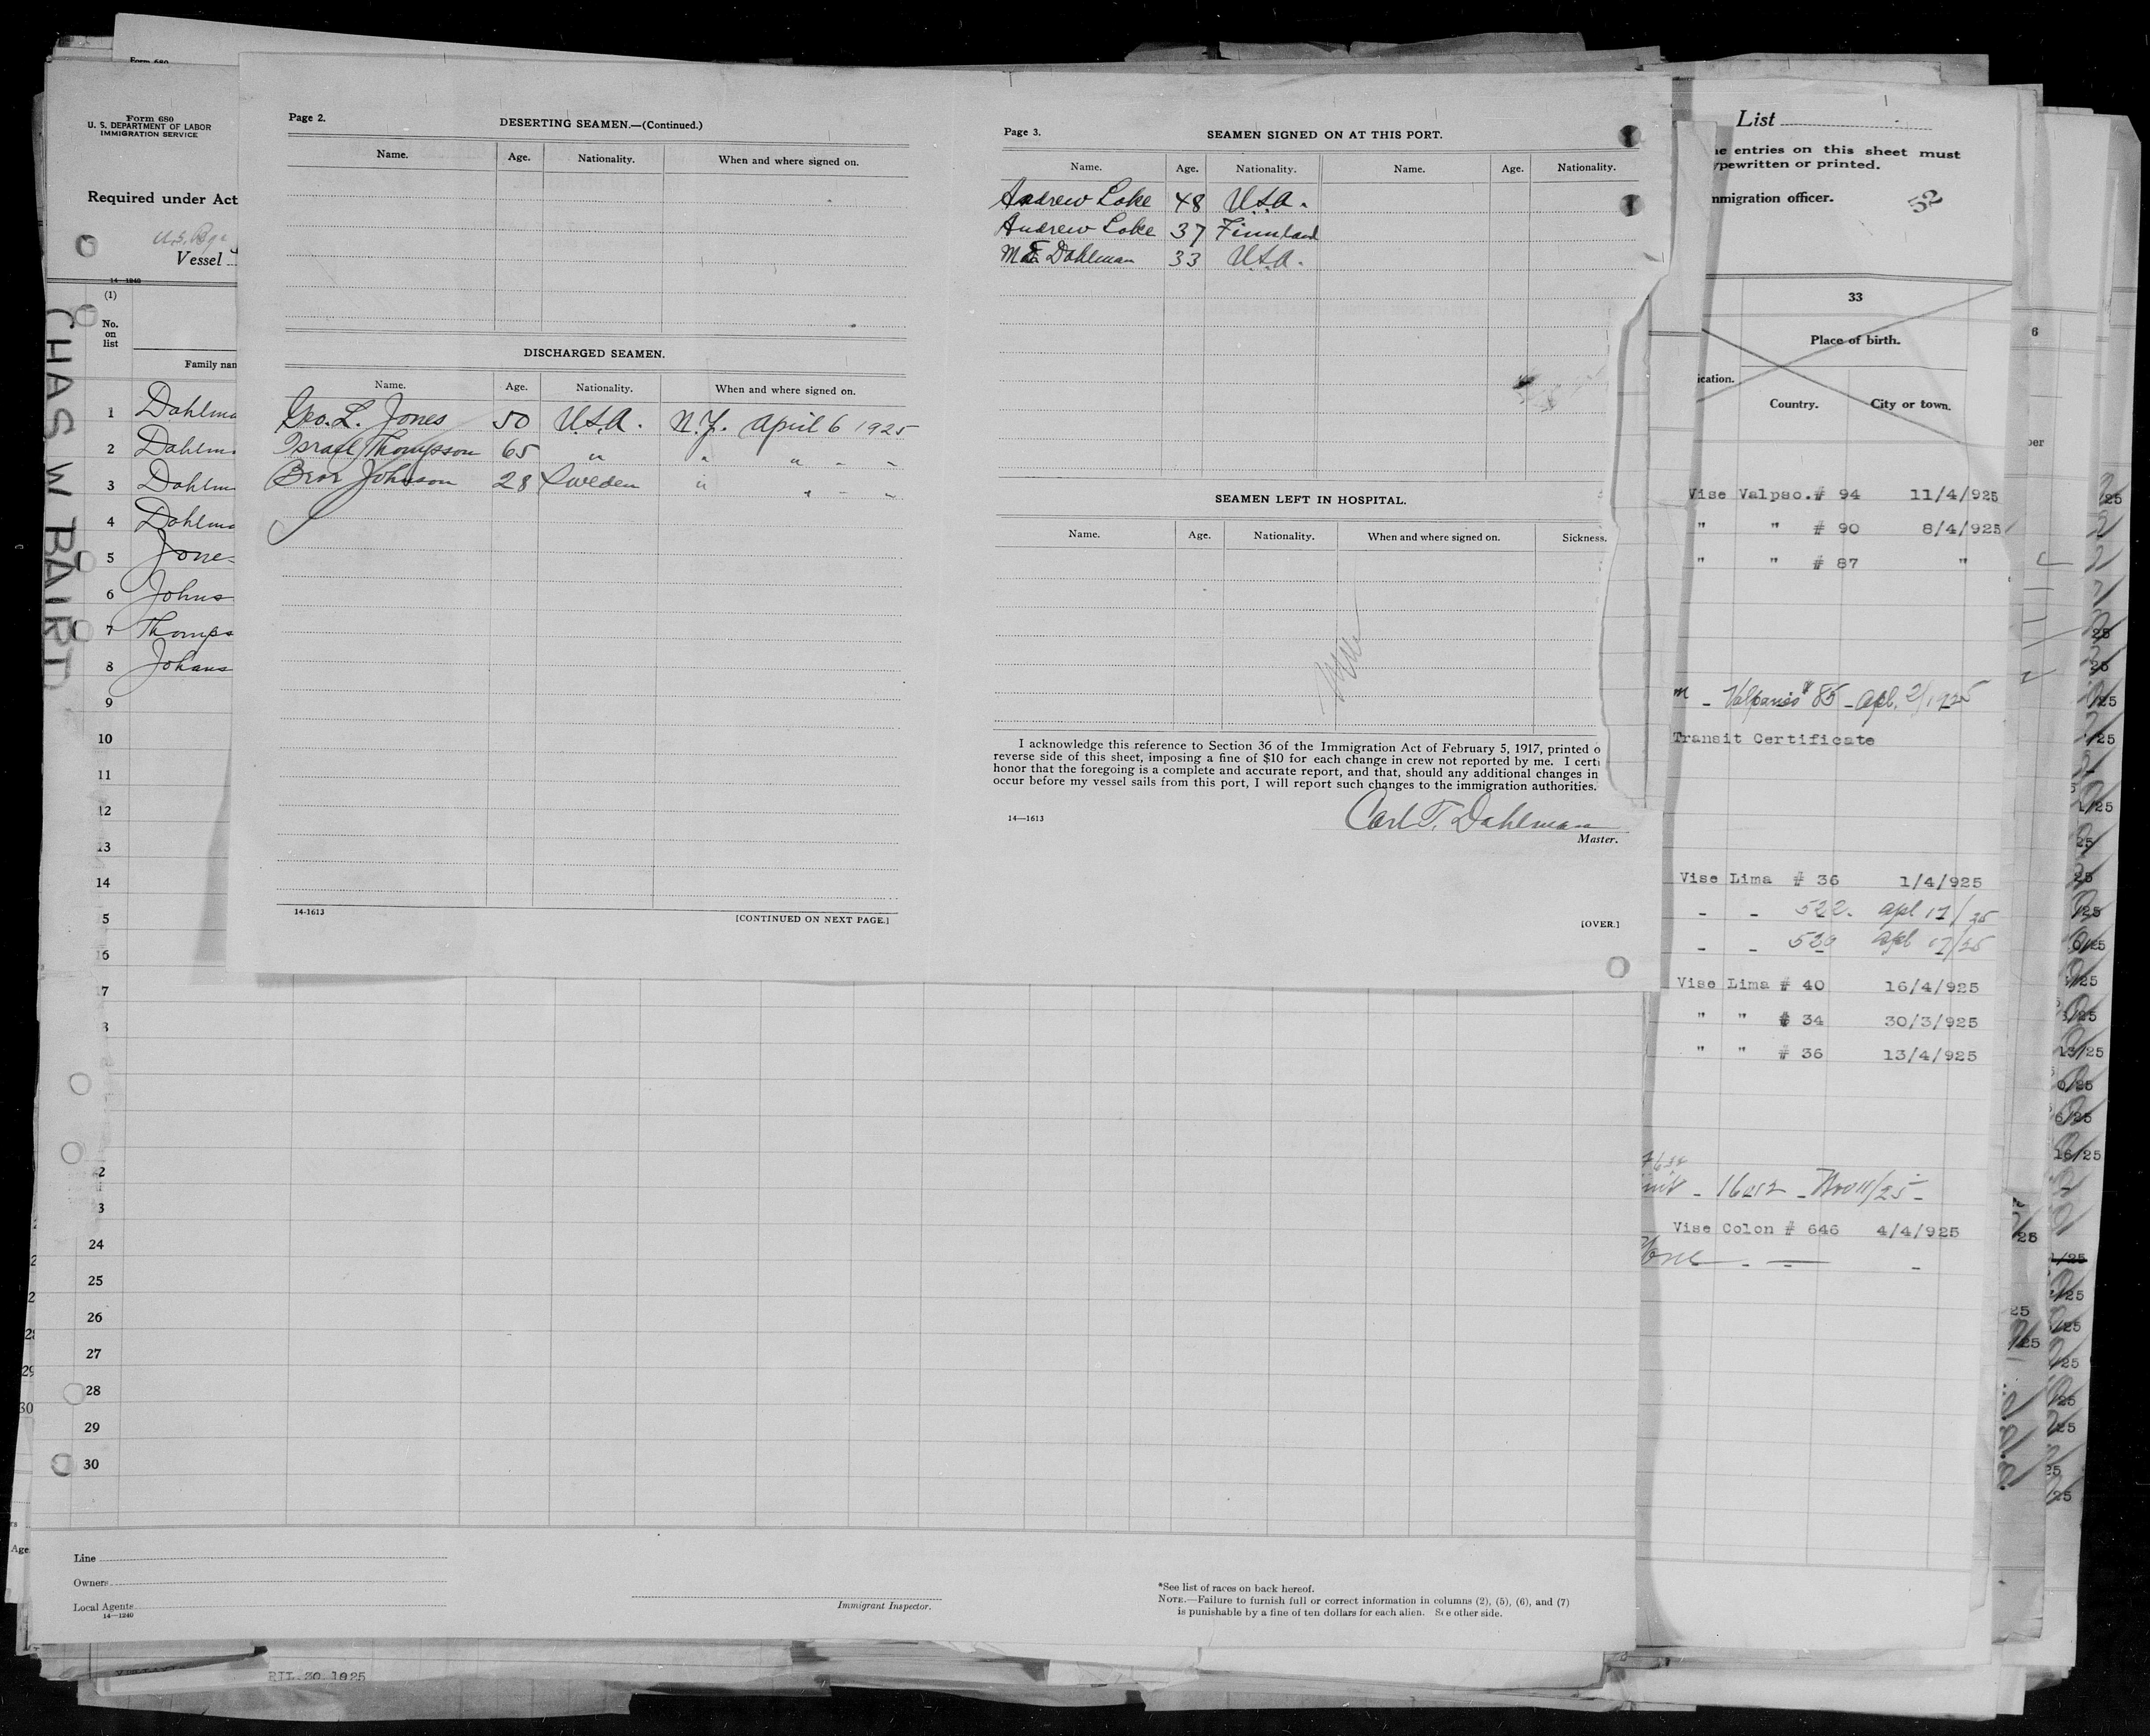 Form 680
U. S. DEPARTMENT OF LABOR
IMMIGRATION SERVICE
Required under Act
Vessel
14—1240
(1)
No.
on
list
Family nam
CHAS W BAIRD
1 Dahlma
2 Dahlm
3 Dahlm
4 Dahlma
5 Jone
6 Johns
7 Thomps
8 Johans
9
10
11
12
13
14
5
16
7
24
25
26
27
28
29
30
Line
Owners
Local Agents
14—1240
Immigrant Inspector.
*See list of races on back hereof.
NOTE.—Failure to furnish full or correct information in columns (2), (5), (6), and (7)
is punishable by a fine of ten dollars for each alien. See other side.
RIL 30 1925
Page 2.
DESERTING SEAMEN.—(Continued.)
Name. Age. Nationality. When and where signed on.
DISCHARGED SEAMEN.
Name. Age. Nationality. When and where signed on.
Geo. L. Jones 50 U.S.A. N.Y. April 6 1925
Israel Thompson 65 " " " " "
Bror Johnson 28 Sweden " " " "
14-1613
[CONTINUED ON NEXT PAGE.]
Page 3.
SEAMEN SIGNED ON AT THIS PORT.
Name. Age. Nationality. Name. Age. Nationality.
Andrew Loke 48 U.S.A.
Andrew Loke 37 Finnland
Dahlman 33 U.S.A.
SEAMEN LEFT IN HOSPITAL.
Name. Age. Nationality. When and where signed on. Sickness.
I acknowledge this reference to Section 36 of the Immigration Act of February 5, 1917, printed o
reverse side of this sheet, imposing a fine of $10 for each change in crew not reported by me. I certi
honor that the foregoing is a complete and accurate report, and that, should any additional changes in
occur before my vessel sails from this port, I will report such changes to the immigration authorities.
Carl T. Dahlman
Master.
14—1613
[OVER.]
List
e entries on this sheet must
ypewritten or printed.
mmigration officer.
52
33
Place of birth.
ication.
Country. City or town.
Vise Valpso.# 94 11/4/925
" " # 90 8/4/925
" " # 87 "
Valparaiso # 85 - Apl. 2/1925
Transit Certificate
Vise Lima # 36 1/4/925
- - 522. apl 17/25
- - 529 apl 17/25
Vise Lima # 40 16/4/925
" " # 34 30/3/925
" " # 36 13/4/925
Vise Colon # 646 4/4/925
None